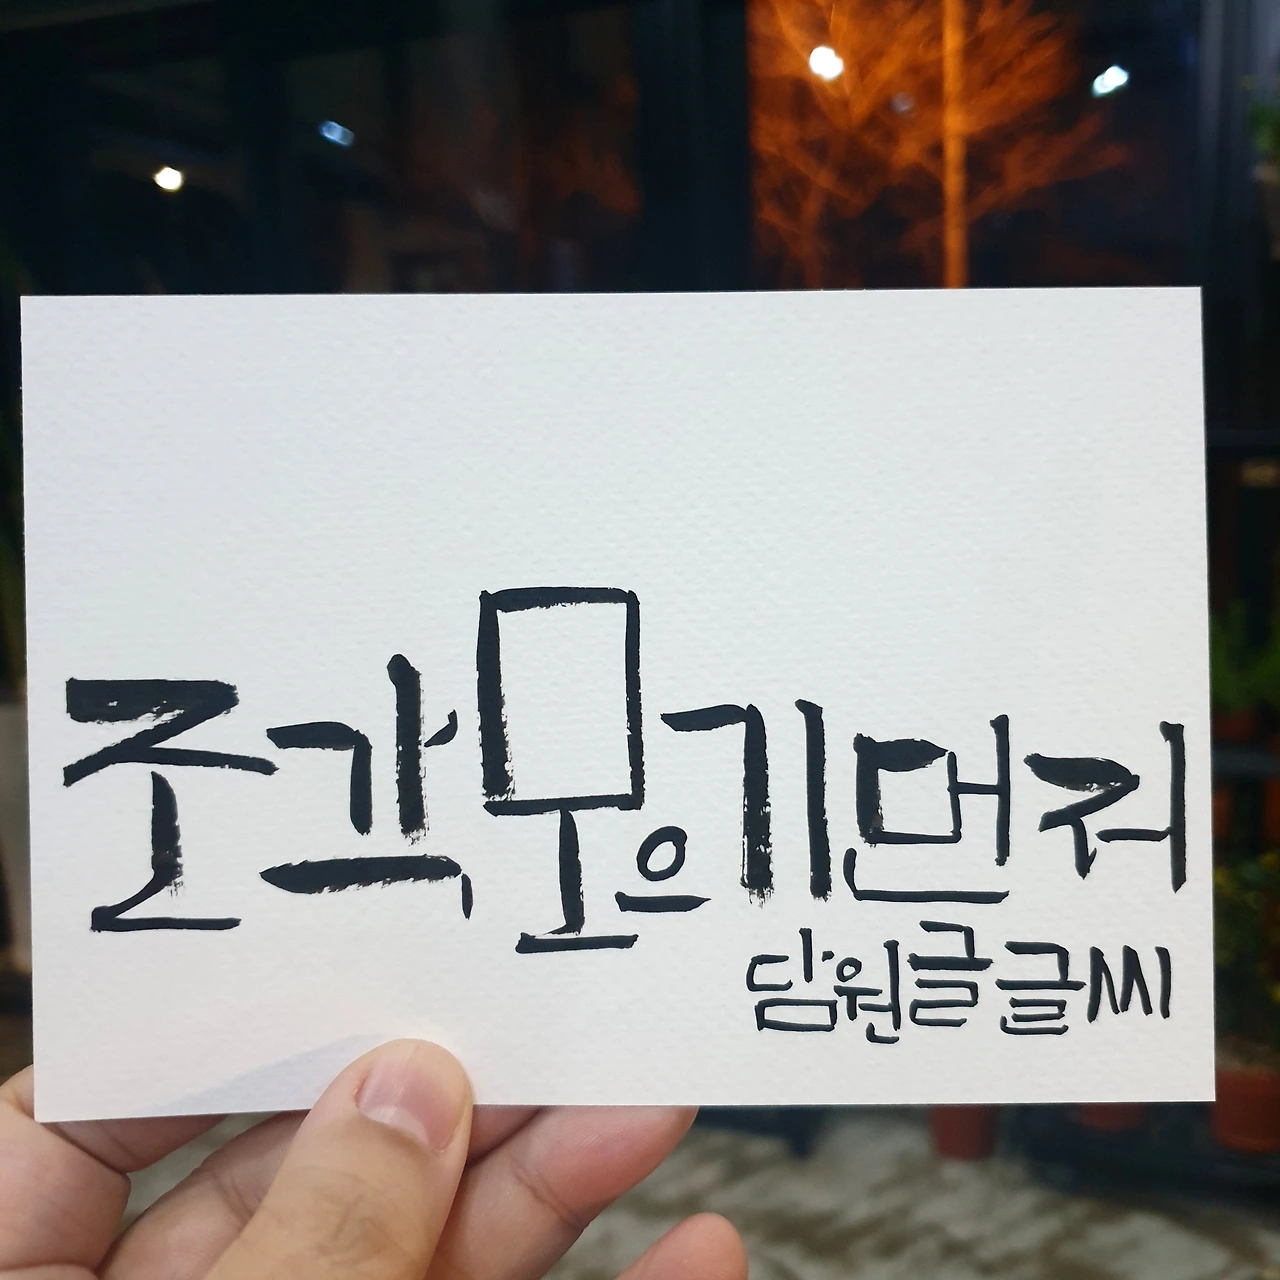 조각모으기먼저
담원글글씨